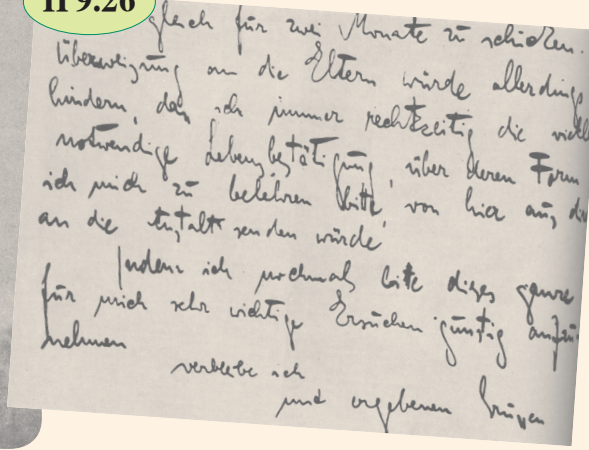 II 9.26
gleich für zwei Monate zu schicken.
Überweigung an die Eltern würde allerdings
hindern, daß ich immer rechtzeitig die viell
notwendige Lebensbestätigung, über deren Form
ich mich zu belehren bitte, von hier aus, di
an die Anstalt senden würde
Indem ich nochmals bitte dieses ganze
für mich sehr wichtige Ersuchen günstig aufzu
nehmen
verbleibe ich
mit ergebenen Grüssen